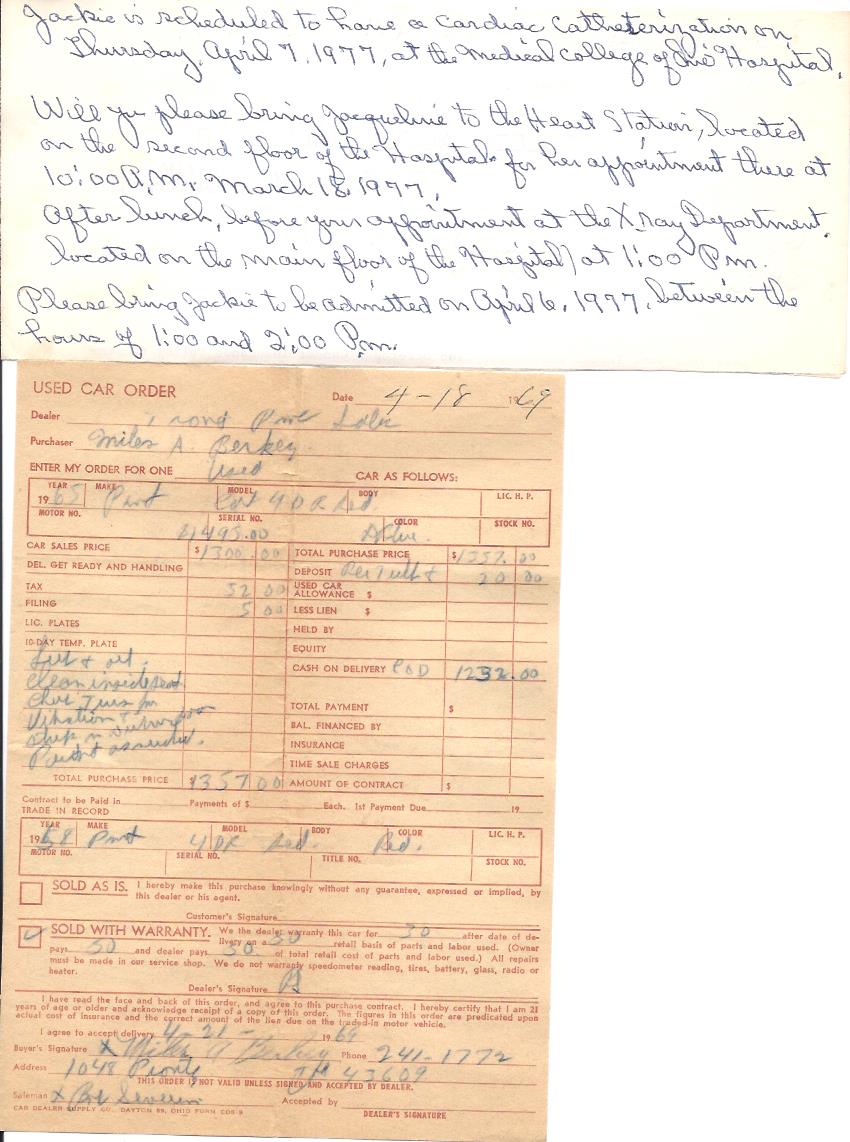 Jackie is scheduled to have a cardiac catheterization on
Thursday, April 7, 1977, at the Medical college of Hospital.
Will you please bring Jacqueline to the Heart Station, located
on the second floor of the Hospital for her appointment there at
10:00 A.M. March 18, 1977,
After lunch, before your appointment at the X ray Department,
located on the main floor of the Hospital) at 1:00 P.m.
Please bring Jackie to be admitted on April 6, 1977, between the
hours of 1:00 and 2:00 P.m.
USED CAR ORDER
Date 4-18 1969
Dealer
Purchaser Miles A. Berkey
ENTER MY ORDER FOR ONE Used CAR AS FOLLOWS:
YEAR MAKE MODEL BODY LIC. H. P.
1965 4 DR
MOTOR NO. SERIAL NO. COLOR STOCK NO.
$1495.00
CAR SALES PRICE $1300.00 TOTAL PURCHASE PRICE $1357.00
DEL. GET READY AND HANDLING DEPOSIT 20 00
TAX 52 00 USED CAR ALLOWANCE $
FILING 5 00 LESS LIEN $
LIC. PLATES HELD BY
10-DAY TEMP. PLATE EQUITY
CASH ON DELIVERY COD 1232.00
clean inside
TOTAL PAYMENT $
BAL. FINANCED BY
INSURANCE
TIME SALE CHARGES
TOTAL PURCHASE PRICE $1357 00 AMOUNT OF CONTRACT $
Contract to be Paid in Payments of $ Each. 1st Payment Due 19
TRADE IN RECORD
YEAR MAKE MODEL BODY COLOR LIC. H. P.
1958 4 DR Red.
MOTOR NO. SERIAL NO. TITLE NO. STOCK NO.
SOLD AS IS. I hereby make this purchase knowingly without any guarantee, expressed or implied, by
this dealer or his agent.
Customer's Signature
SOLD WITH WARRANTY. We the dealer warranty this car for 30 after date of de-
livery on a 50 retail basis of parts and labor used. (Owner
pays 50 and dealer pays 50 of total retail cost of parts and labor used.) All repairs
must be made in our service shop. We do not warranty speedometer reading, tires, battery, glass, radio or
heater.
Dealer's Signature
I have read the face and back of this order, and agree to this purchase contract. I hereby certify that I am 21
years of age or older and acknowledge receipt of a copy of this order. The figures in this order are predicated upon
actual cost of insurance and the correct amount of the lien due on the traded-in motor vehicle.
I agree to accept delivery 4-21- 1969
Buyer's Signature X Miles A Berkey Phone 241-1772
Address 1048 43609
THIS ORDER IS NOT VALID UNLESS SIGNED AND ACCEPTED BY DEALER.
Salesman X Bob Accepted by
CAR DEALER SUPPLY CO., DAYTON 59, OHIO FORM CDS-9 DEALER'S SIGNATURE